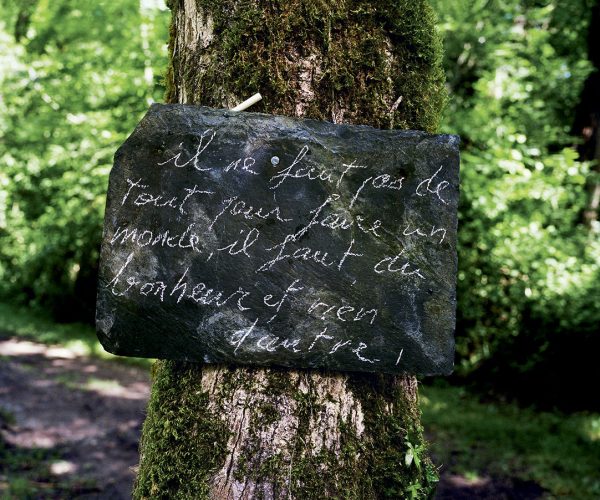 il ne faut pas de
tout pour faire un
monde, il faut du
bonheur et rien
d'autre,